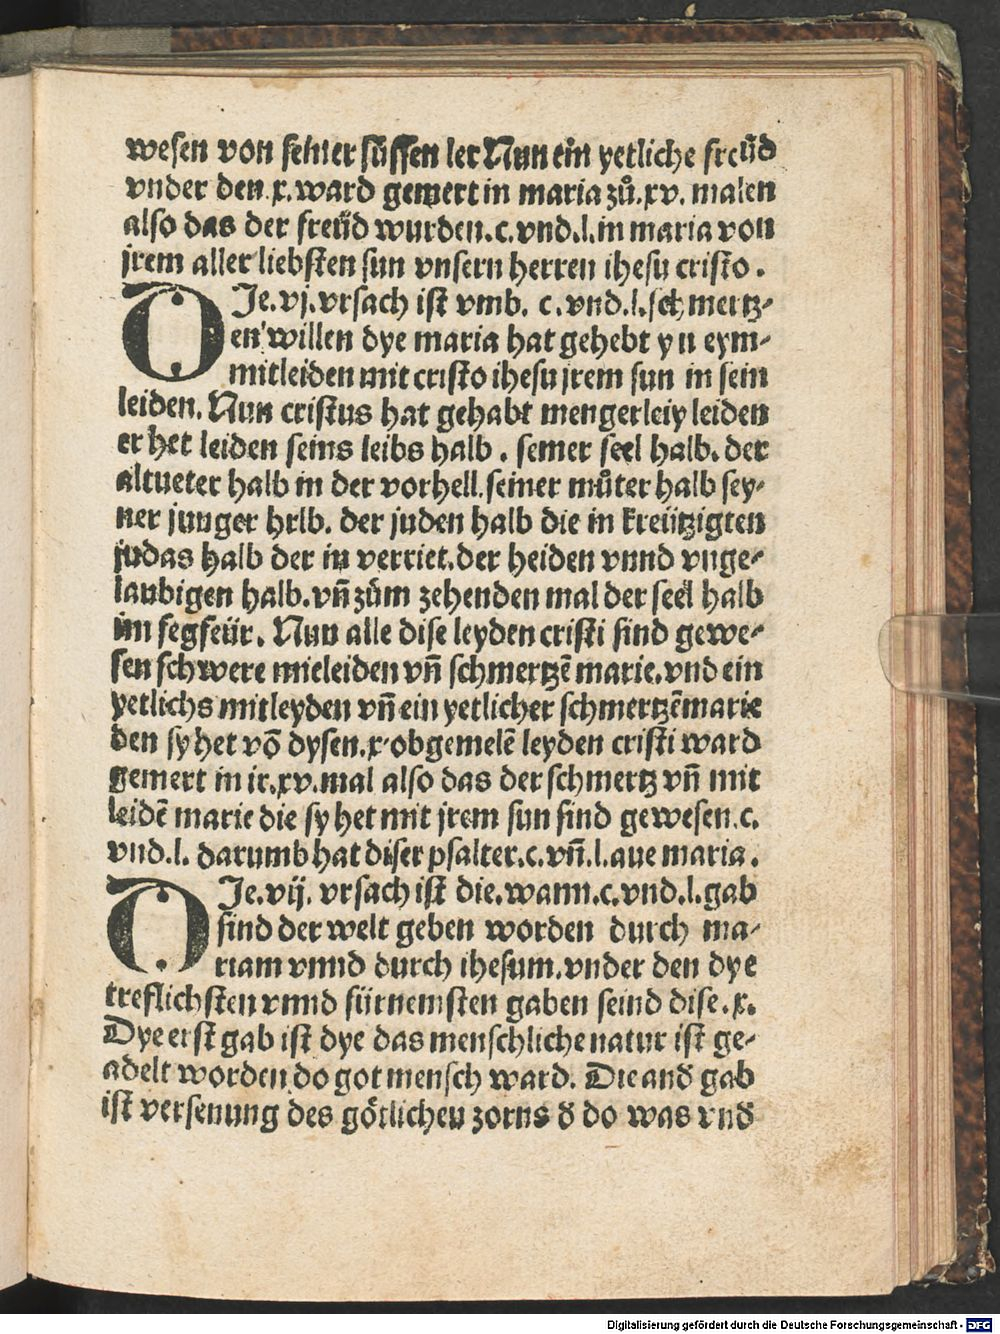 wesen von seiner süssen ler Nun ein yetliche freüd
vnder den.x.ward gemert in maria zů.xv. malen
also das der freüd wurden.c.vnd.l.in maria von
jrem aller liebsten sun vnsern herren ihesu cristo.
DIe.vj.vrsach ist vmb. c.vnd.l.schmertz-
en willen dye maria hat gehebt yn eym-
mitleiden mit cristo ihesu jrem sun in sein
leiden. Nun cristus hat gehabt mengerleiy leiden
er het leiden seins leibs halb. seiner seel halb. der
altueter halb in der vorhell.seiner můter halb sey-
ner junger hrlb. der juden halb die in kreützigten
judas halb der in verriet.der heiden vnnd vnge-
laubigen halb.vñ zům zehenden mal der seel halb
im fegfeür. Nun alle dise leyden cristi sind gewe-
sen schwere mieleiden vñ schmertzē marie.vnd ein
yetlichs mitleyden vñ ein yetlicher schmertzē marie
den sy het vō dysen.x.obgemelē leyden cristi ward
gemert in ir.xv.mal also das der schmertz vñ mit
leidē marie die sy het mit jrem sun sind gewesen.c.
vnd.l. darumb hat diser psalter.c.vñ.l.aue maria.
DIe.vij. vrsach ist die.wann.c.vnd.l.gab
sind der welt geben worden durch ma-
riam vnnd durch ihesum.vnder den dye
treflichsten vnnd fürnemsten gaben seind dise.x.
Dye erst gab ist dye das menschliche natur ist ge-
adelt worden do got mensch ward. Die and gab
ist versenung des götlichen zorns d do was vnd
Digitalisierung gefördert durch die Deutsche Forschungsgemeinschaft - DFG